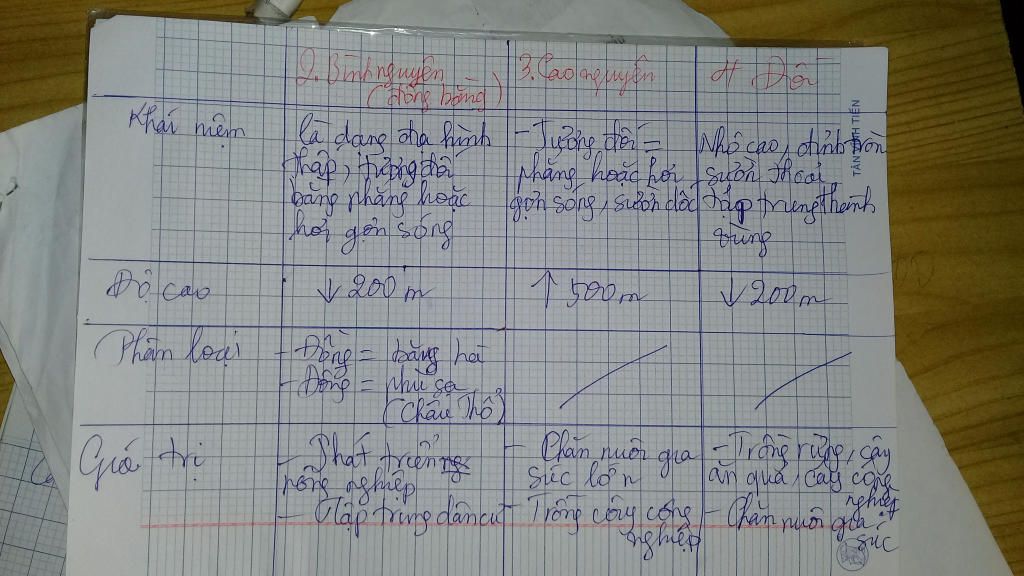 2. Bình nguyên
(đồng bằng)
3. Cao nguyên
4 Đồi
Khái niệm
là dạng địa hình
thấp, tương đối
bằng phẳng hoặc
hơi gợn sóng
- Tương đối =
phẳng hoặc hơi
gợn sóng, sườn dốc
Nhô cao, đỉnh tròn
sườn thoải
tập trung thành
vùng
Độ cao
↓ 200 m
↑ 500 m
↓ 200 m
Phân loại
- Đồng = băng hà
- Đồng = phù sa
(Châu Thổ)
Giá trị
- Phát triển
nông nghiệp
- Tập trung dân cư
- Chăn nuôi gia
súc lớn
- Trồng cây công
nghiệp
- Trồng rừng, cây
ăn quả, cây công
nghiệp
- Chăn nuôi gia
súc